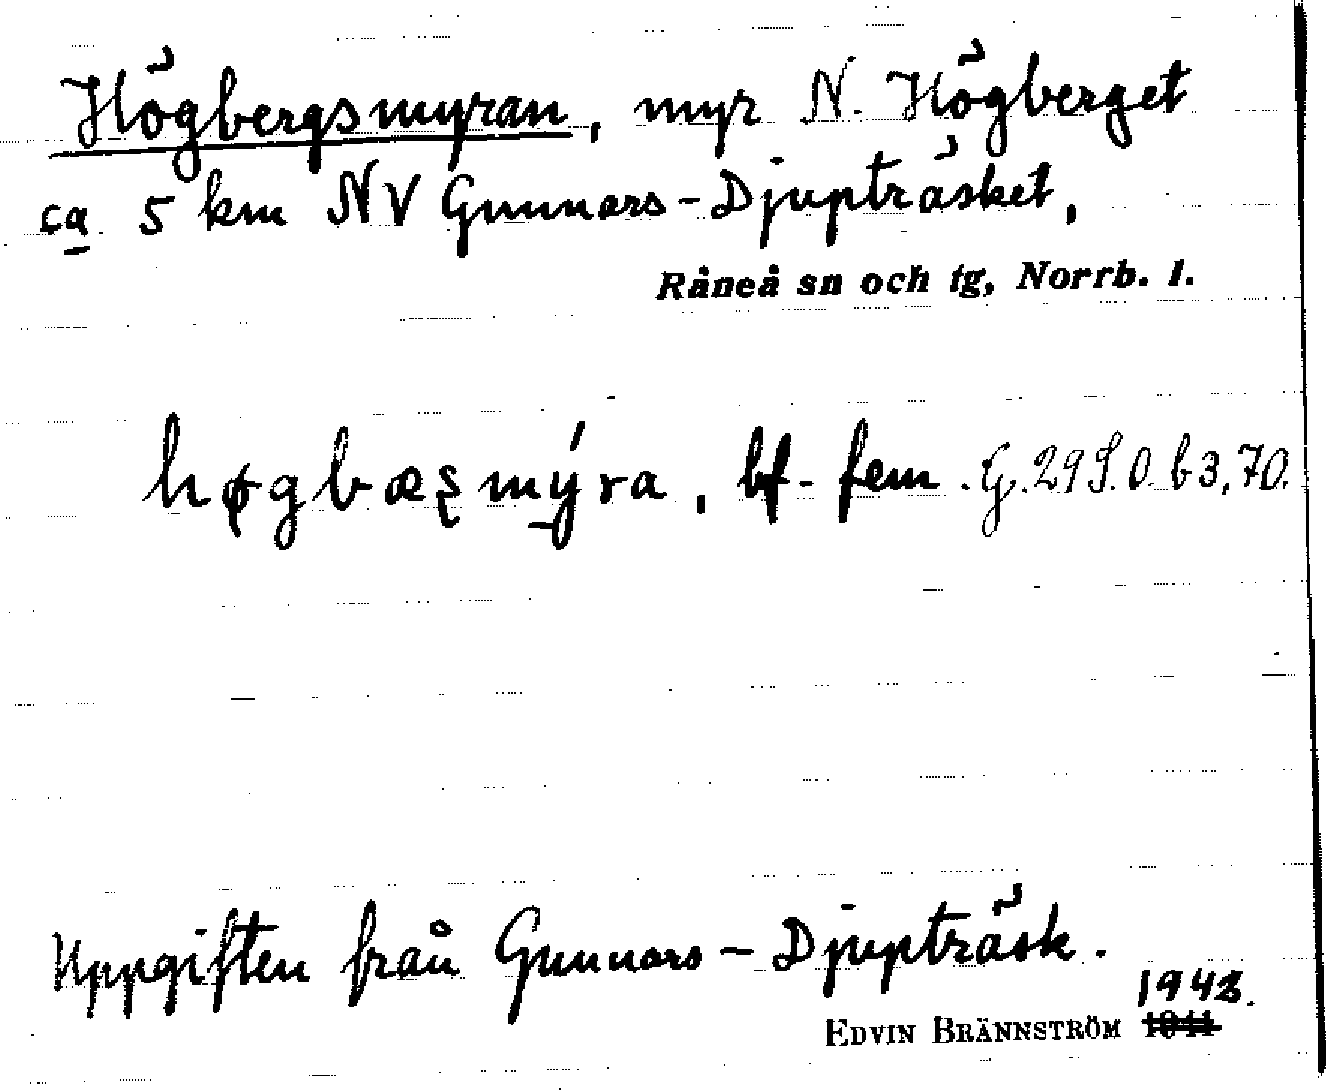 Högbergsmyran, myr N. Högberget
ca 5 km NV Gunnars-Djupträsket,
Råneå sn och tg, Norrb. l.
høgbæʂmý̲ra, bf. fem. G.29S.0 b3,70.
Uppgiften från Gunnars-Djupträsk.
1943.
EDVIN BRÄNNSTRÖM 1941